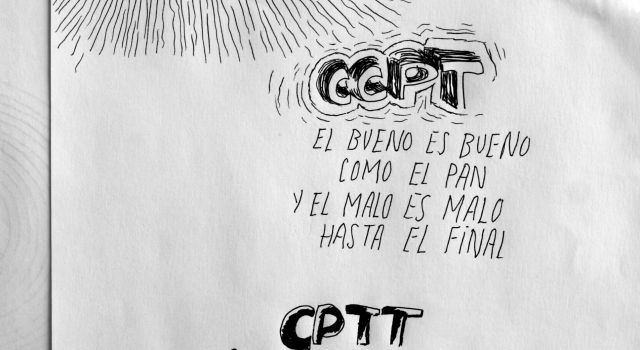 CCPT
EL BUENO ES BUENO
COMO EL PAN
Y EL MALO ES MALO
HASTA EL FINAL
CPTT